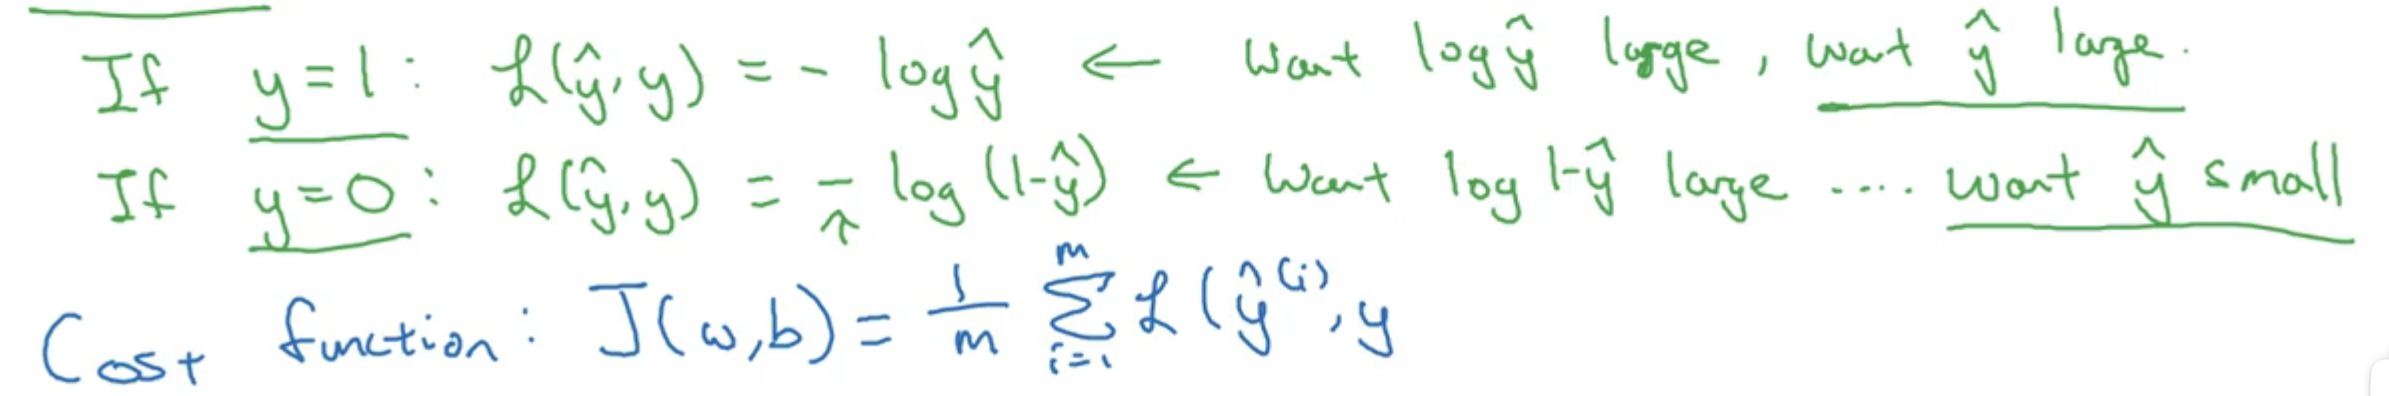 If y=1: ℒ(ŷ,y) = - log ŷ ← Want log ŷ large, want ŷ large.
If y=0: ℒ(ŷ,y) = - log (1-ŷ) ← Want log 1-ŷ large .... want ŷ small
↑
Cost function: J(w,b) = 1/m ∑_{i=1}^{m} ℒ(ŷ^{(i)}, y